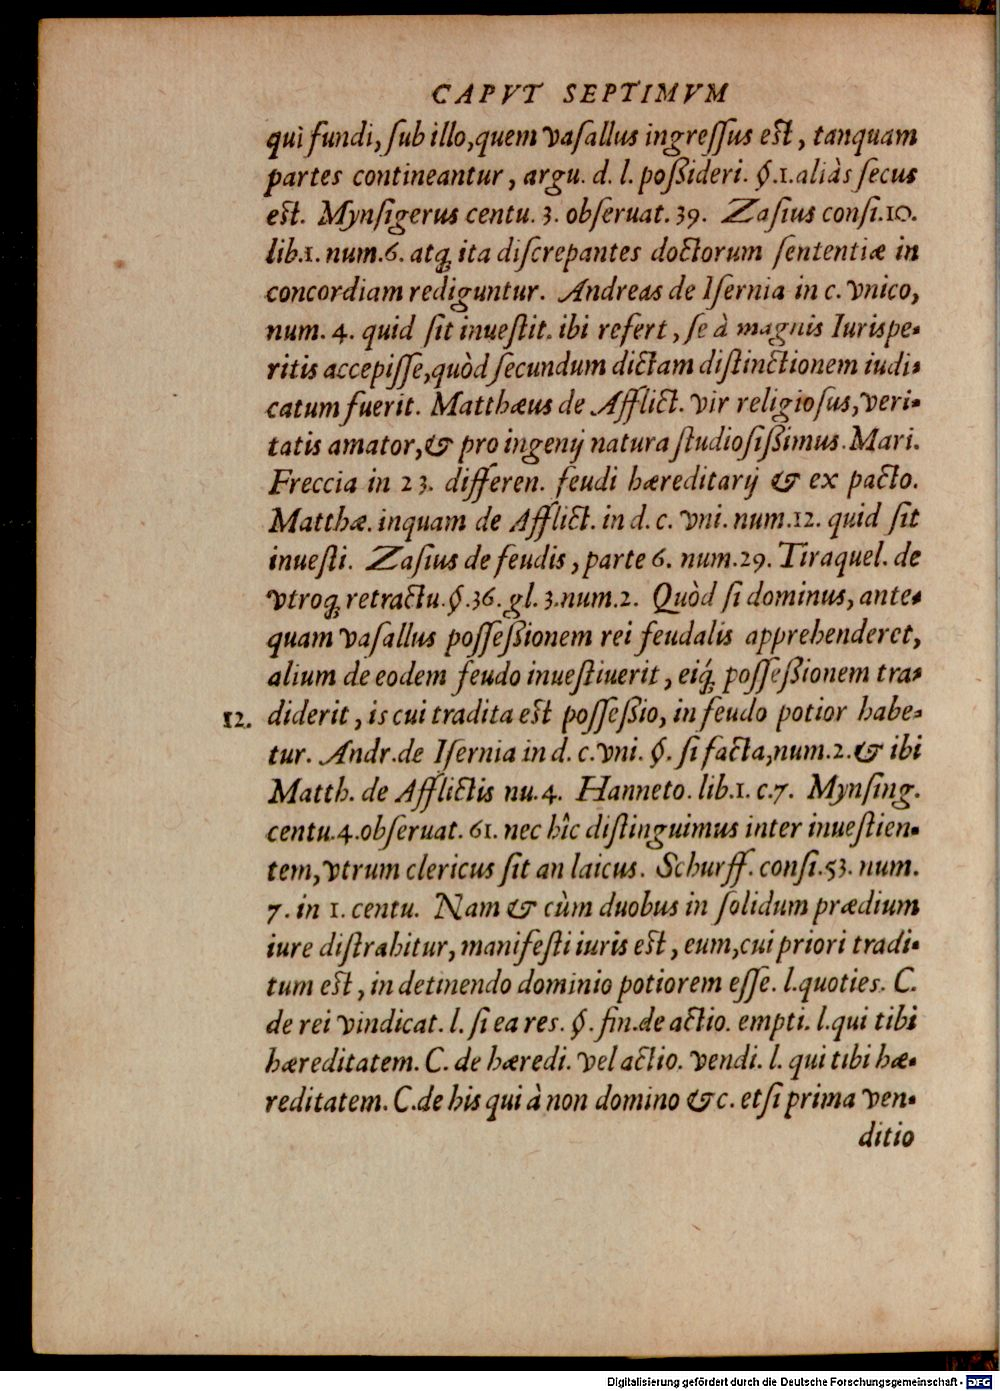 CAPVT SEPTIMVM
qui fundi, ſub illo, quem vaſallus ingreſſus eſt, tanquam
partes contineantur, argu. d. l. poßideri. §.1. aliàs ſecus
eſt. Mynſigerus centu. 3. obſeruat. 39. Zaſius conſi.10.
lib.1. num.6. atq́; ita diſcrepantes doctorum ſententiæ in
concordiam rediguntur. Andreas de Iſernia in c. vnico,
num. 4. quid ſit inueſtit. ibi refert, ſe à magnis Iurispe-
ritis accepiſſe, quòd ſecundum dictam diſtinctionem iudi-
catum fuerit. Matthæus de Afflict. vir religioſus, veri-
tatis amator, & pro ingenij natura ſtudioſißimus. Mari.
Freccia in 23. differen. feudi hæreditarij & ex pacto.
Matthæ. inquam de Afflict. in d. c. vni. num.12. quid ſit
inueſti. Zaſius de feudis, parte 6. num.29. Tiraquel. de
vtroq; retractu. §.36. gl. 3. num.2. Quòd ſi dominus, ante-
quam vaſallus poſſeßionem rei feudalis apprehenderet,
alium de eodem feudo inueſtiuerit, eiq́; poſſeßionem tra-
12. diderit, is cui tradita eſt poſſeßio, in feudo potior habe-
tur. Andr. de Iſernia in d. c. vni. §. ſi facta, num.2. & ibi
Matth. de Afflictis nu.4. Hanneto. lib.1. c.7. Mynſing.
centu.4. obſeruat. 61. nec hîc diſtinguimus inter inueſtien-
tem, vtrum clericus ſit an laicus. Schurff. conſi.53. num.
7. in 1. centu. Nam & cùm duobus in ſolidum prædium
iure diſtrahitur, manifeſti iuris eſt, eum, cui priori tradi-
tum eſt, in detinendo dominio potiorem eſſe. l. quoties. C.
de rei vindicat. l. ſi ea res. §. fin. de actio. empti. l. qui tibi
hæreditatem. C. de hæredi. vel actio. vendi. l. qui tibi hæ-
reditatem. C. de his qui à non domino &c. etſi prima ven-
ditio
Digitalisierung gefördert durch die Deutsche Forschungsgemeinschaft - DFG